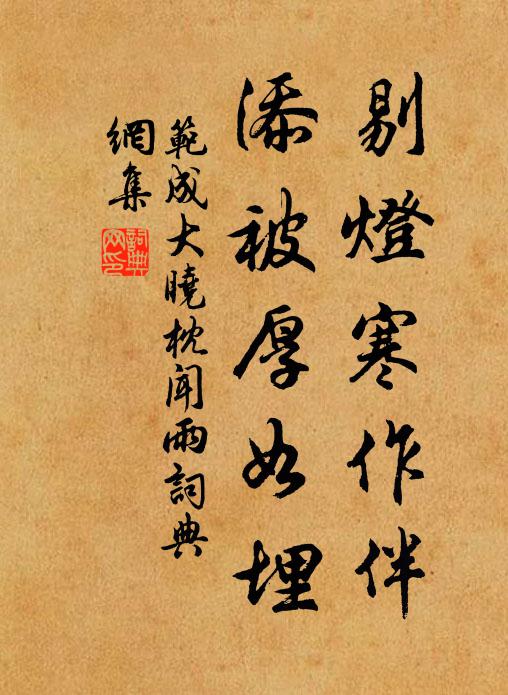 剔燈寒作伴
添被厚如埋
範成大曉枕闻雨詞典
網集
詞典
网印